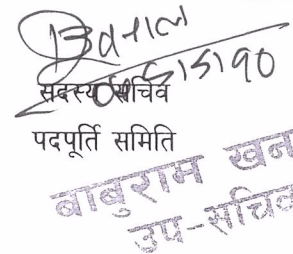 सदस्य सचिव
पदपूर्ति समिति
बाबुराम खन
उप-सचिव